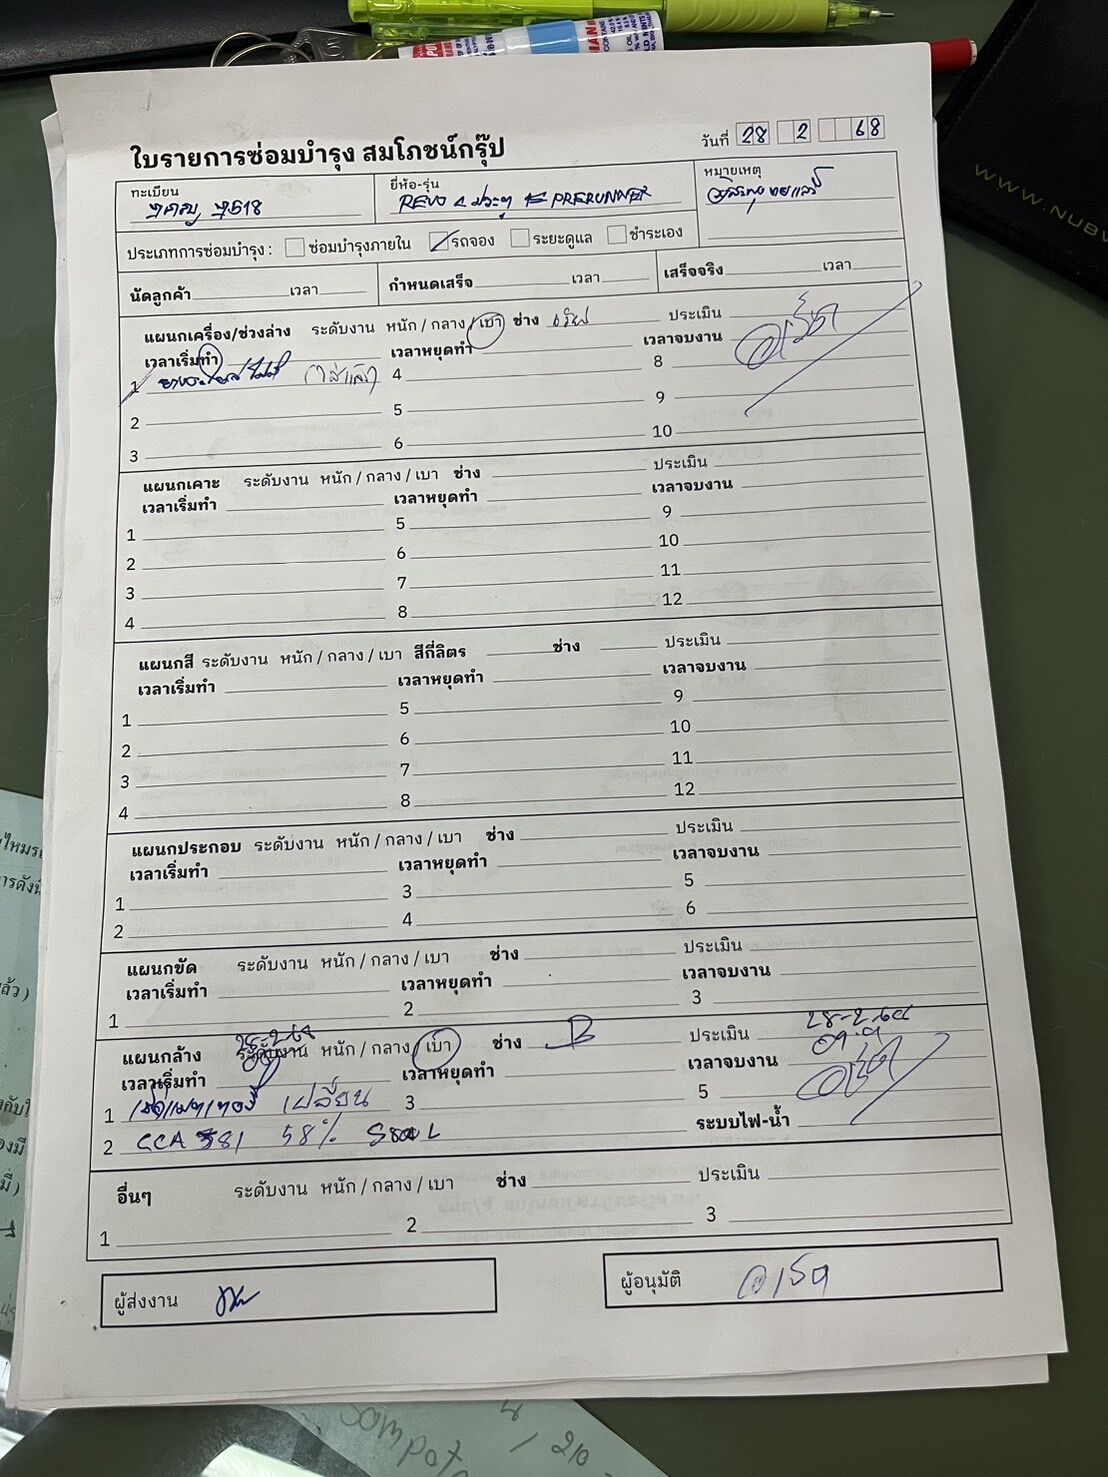 ใบรายการซ่อมบำรุง สมโภชน์กรุ๊ป
วันที่ 28 2 68
ทะเบียน
ยี่ห้อ-รุ่น REVO 4 ประตู PRERUNNER
หมายเหตุ
ประเภทการซ่อมบำรุง : ซ่อมบำรุงภายใน รถจอง ระยะดูแล ชำระเอง
นัดลูกค้า เวลา กำหนดเสร็จ เวลา เสร็จจริง เวลา
แผนกเครื่อง/ช่วงล่าง ระดับงาน หนัก / กลาง / เบา ช่าง ประเมิน
เวลาเริ่มทำ เวลาหยุดทำ เวลาจบงาน
1 4 8
2 5 9
3 6 10
แผนกเคาะ ระดับงาน หนัก / กลาง / เบา ช่าง ประเมิน
เวลาเริ่มทำ เวลาหยุดทำ เวลาจบงาน
1 5 9
2 6 10
3 7 11
4 8 12
แผนกสี ระดับงาน หนัก / กลาง / เบา สีกี่ลิตร ช่าง ประเมิน
เวลาเริ่มทำ เวลาหยุดทำ เวลาจบงาน
1 5 9
2 6 10
3 7 11
4 8 12
แผนกประกอบ ระดับงาน หนัก / กลาง / เบา ช่าง ประเมิน
เวลาเริ่มทำ เวลาหยุดทำ เวลาจบงาน
1 3 5
2 4 6
แผนกขัด ระดับงาน หนัก / กลาง / เบา ช่าง ประเมิน
เวลาเริ่มทำ เวลาหยุดทำ เวลาจบงาน
1 2 3
แผนกล้าง ระดับงาน หนัก / กลาง / เบา ช่าง B ประเมิน
เวลาเริ่มทำ เวลาหยุดทำ เวลาจบงาน
1 เปลี่ยน 3 5
2 CCA 381 58% ระบบไฟ-น้ำ
อื่นๆ ระดับงาน หนัก / กลาง / เบา ช่าง ประเมิน
1 2 3
ผู้ส่งงาน
ผู้อนุมัติ
WWW.NUBW